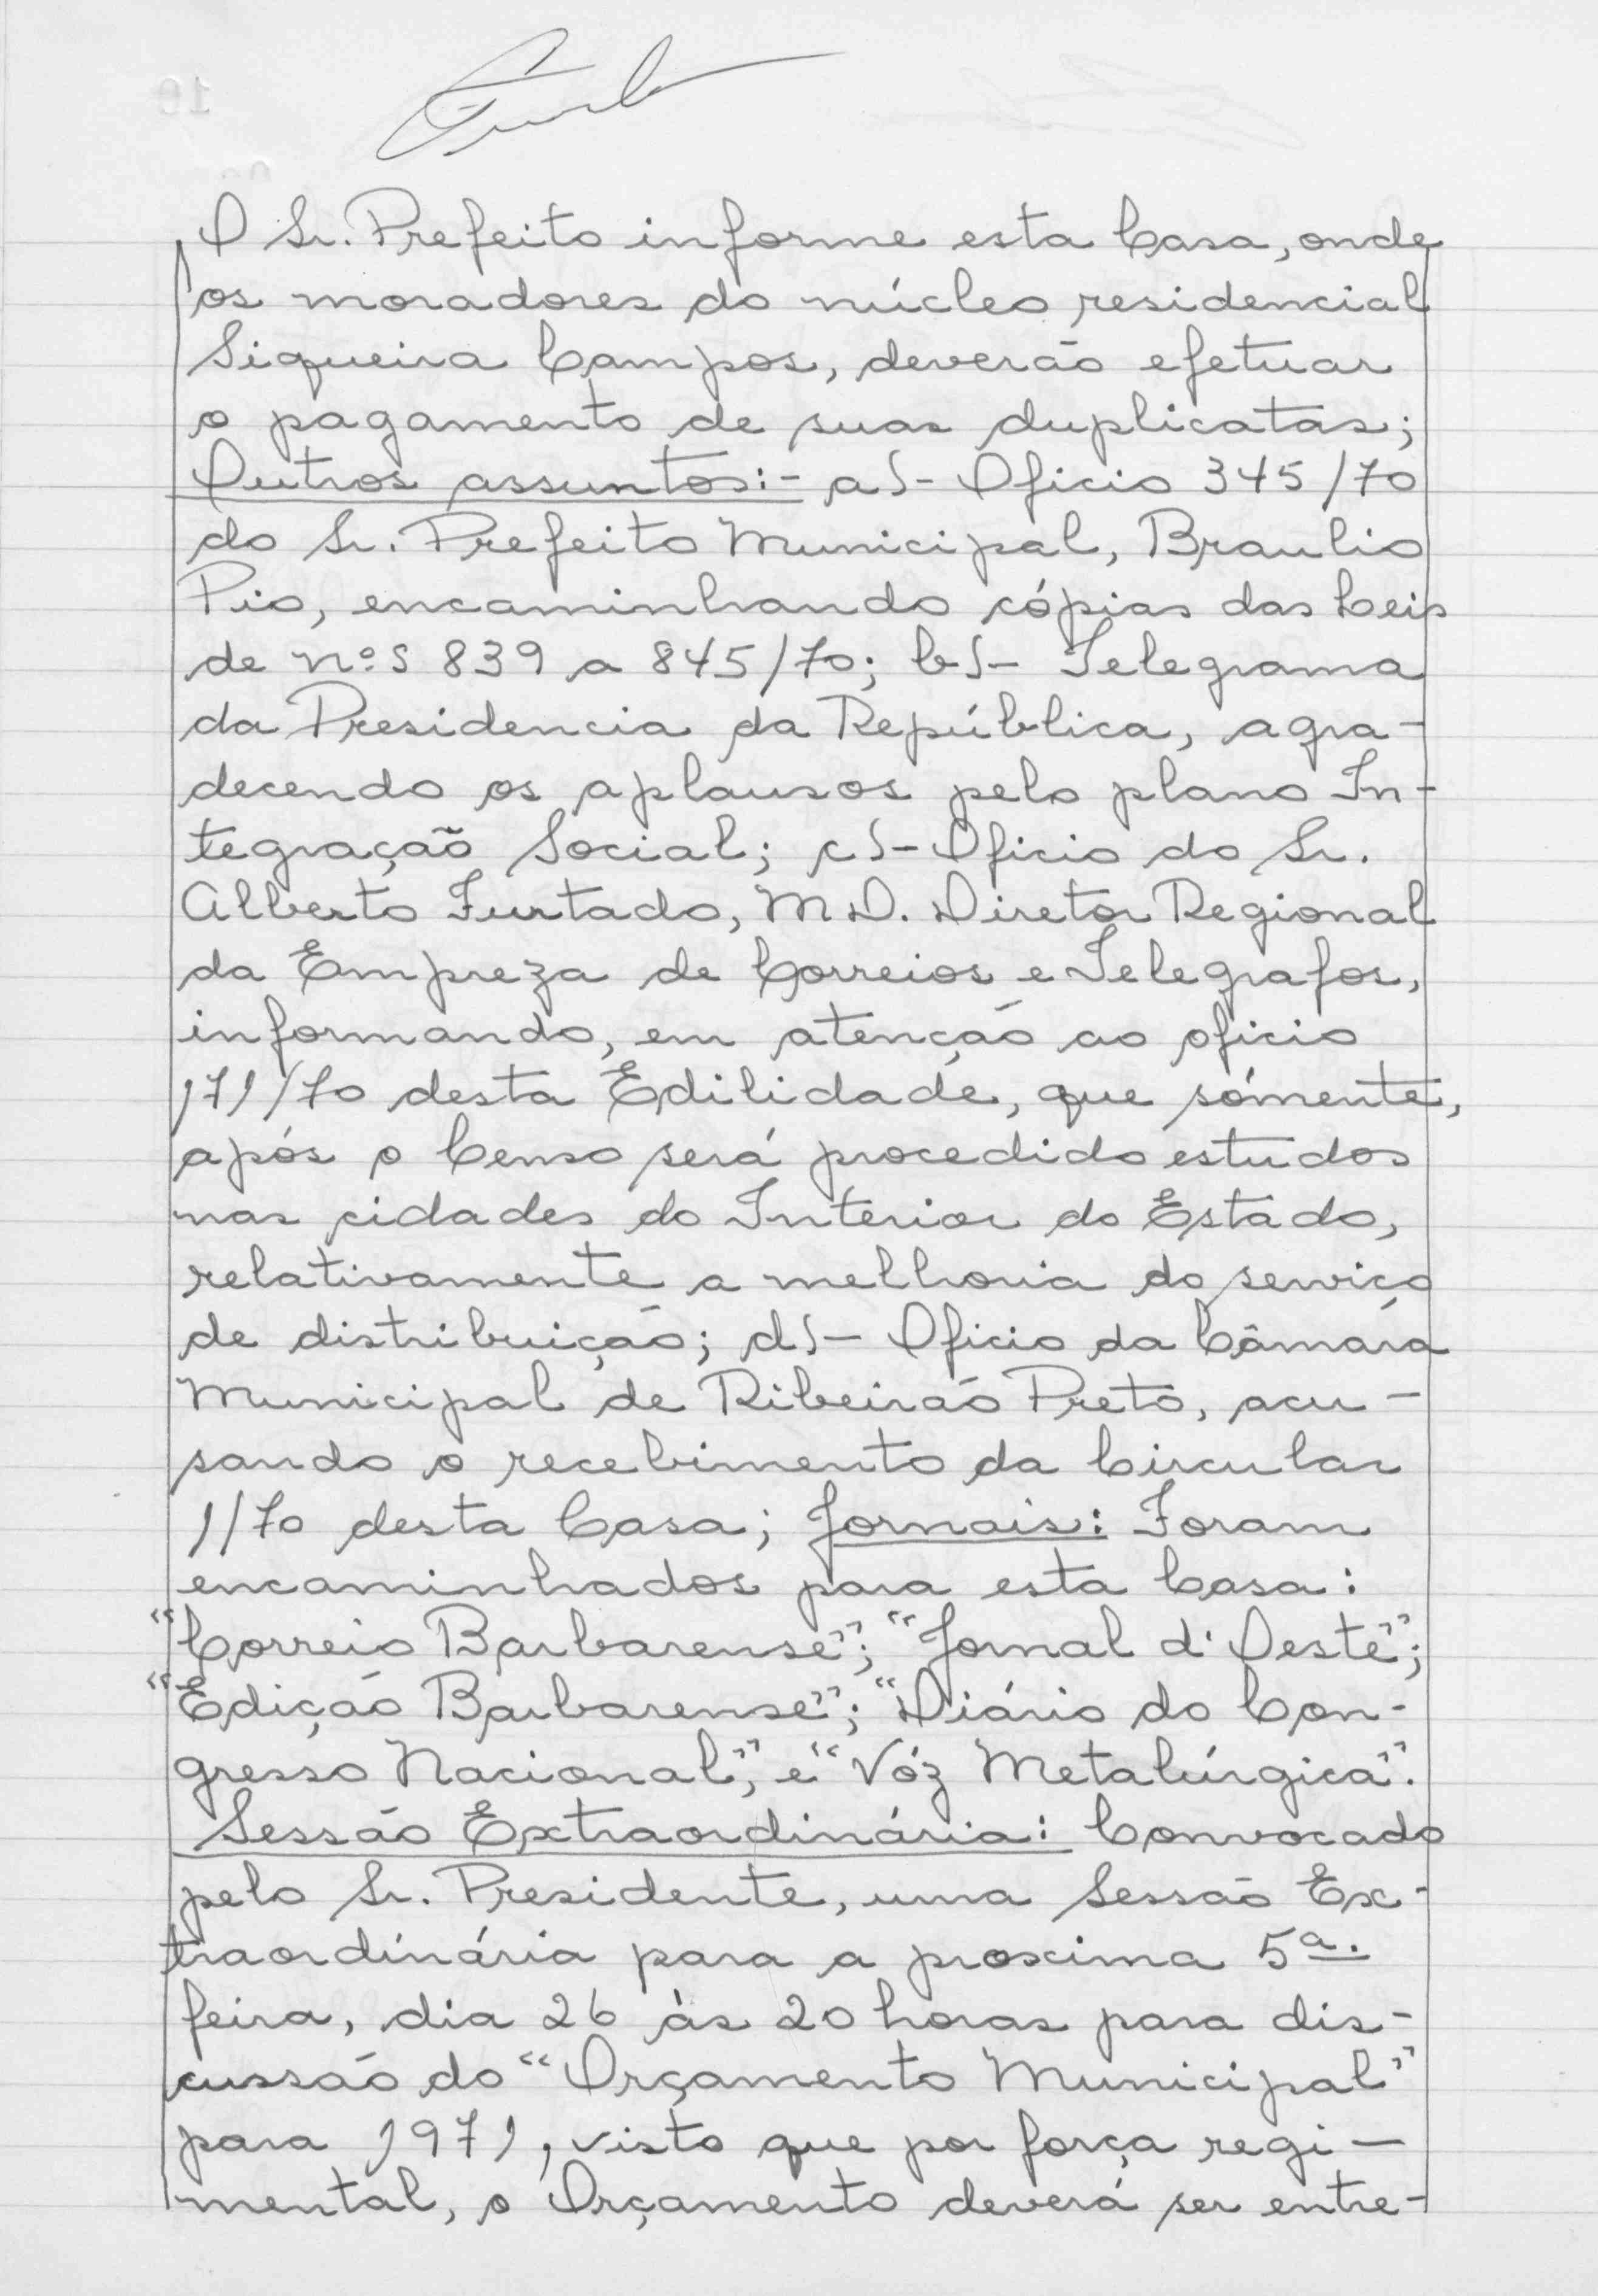 O Sr. Prefeito informe esta Casa, onde
os moradores do núcleo residencial
Siqueira Campos, deverão efetuar
o pagamento de suas duplicatas;
Outros assuntos:- a)- Oficio 345/70
do Sr. Prefeito Municipal, Braulio
Pio, encaminhando cópias das Leis
de nºs 839 a 845/70; b)- Telegrama
da Presidencia da República, agra-
decendo os aplausos pelo plano In-
tegração Social; c)- Oficio do Sr.
Alberto Furtado, MD. Diretor Regional
da Empreza de Correios e Telegrafos,
informando, em atenção ao oficio
171/70 desta Edilidade, que sómente,
após o Censo será procedido estudos
nas cidades do Interior do Estado,
relativamente a melhoria do serviço
de distribuição; d)- Oficio da Câmara
Municipal de Ribeirão Preto, acu-
sando o recebimento da Circular
1/70 desta Casa; Jornais: Foram
encaminhados para esta Casa:
"Correio Barbarense"; "Jornal d'Oeste";
"Edição Barbarense"; "Diário do Con-
gresso Nacional", e "Vóz Metalúrgica".
Sessão Extraordinária: Convocado
pelo Sr. Presidente, uma Sessão Ex-
traordinária para a proxima 5ª.
feira, dia 26 às 20 horas para dis-
cussão do "Orçamento Municipal"
para 1971, visto que por força regi-
mental, o Orçamento deverá ser entre-